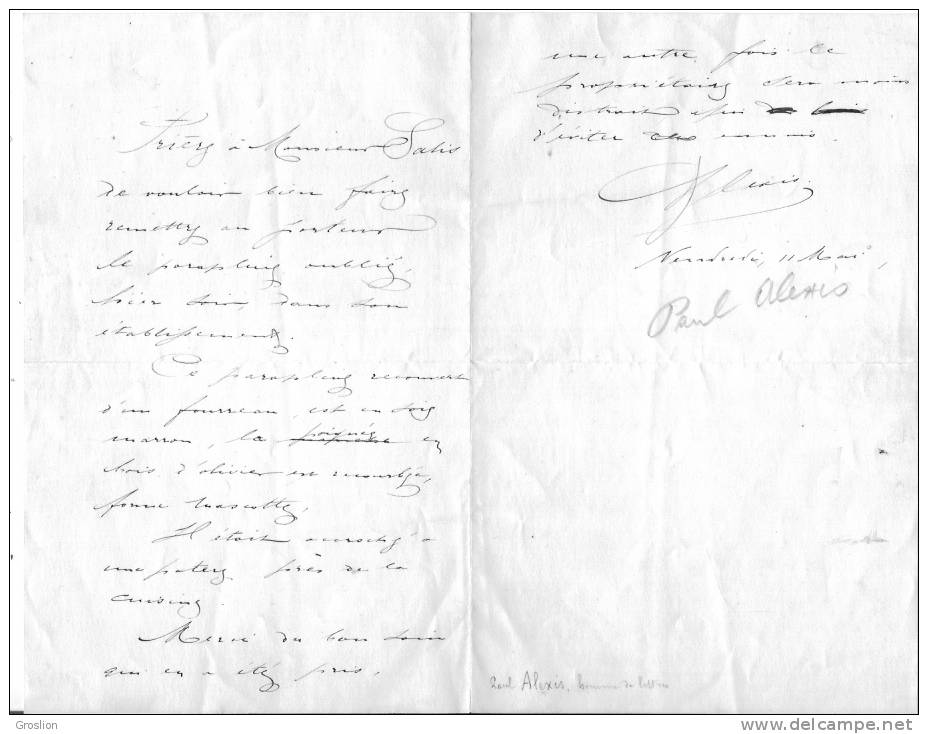 Prière à Monsieur Salis
de vouloir bien faire
remettre au porteur
le parapluie oublié,
hier soir, dans son
établissement.
Ce parapluie recouvert
d'un fourreau, est en soie
marron, la poignée en
bois d'olivier est recourbée,
forme mascotte,
Il était accroché à
une patère près de la
cuisine.
Merci du bon soin
qui en a été pris,
une autre fois le
propriétaire sera moins
distrait afin
d'éviter ces ennuis.
Alexis
Vendredi, 11 Mai,
Paul Alexis
Paul Alexis, homme de lettres
Groslion
www.delcampe.net